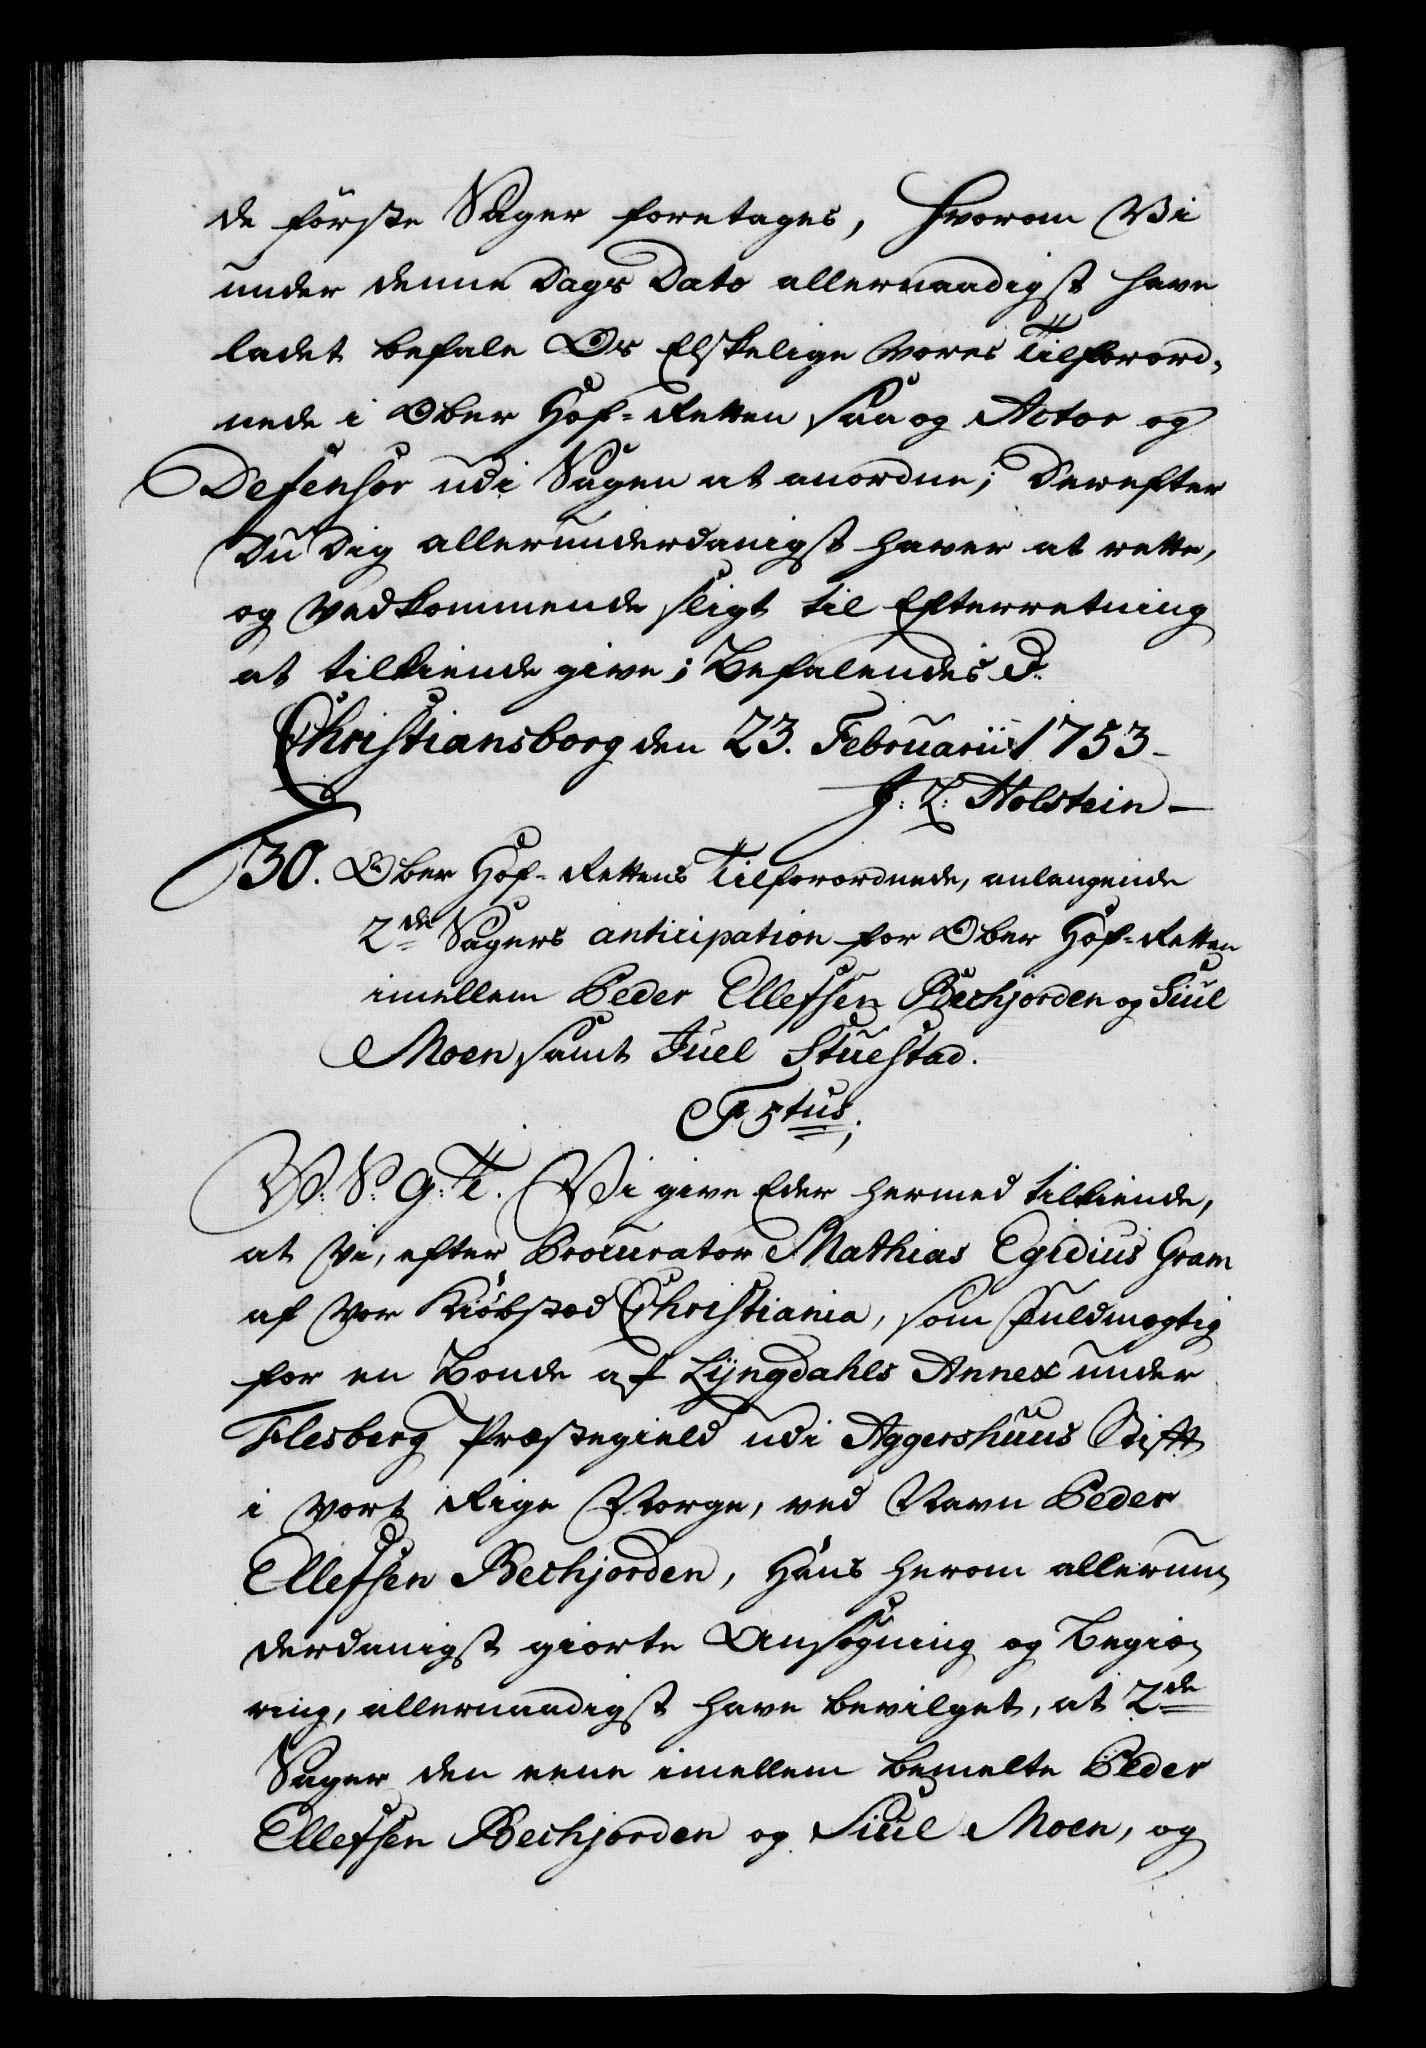 de förste Sager foretages, Hvorom Vi
under denne Dags Dato allernaadigst have
ladet befale Os Elskelige Vores Tilforord-
nede i Ober Hof-Retten saa og Actor og
Defensor udi Sagen at anordne; Derefter
Du Dig allerunderdanigst haver at rette,
og Vedkommende sligt til Efterretning
at tilkiende give; Befalendes p.
Christiansborg den 23. Februarii 1753-
J: L: Holstein-
30. Ober Hof-Rettens Tilforordnede, anlangende
2de Sagers anticipation for Ober Hof-Retten
imellem Peder Ellefsen Bechjorden og Siul
Moen samt Juel Stuestad.
F 5tus;
V: S: G: T. Vi give Eder hermed tilkiende,
at Vi, efter Procurator Mathias Egidius Gram
af Vor Kiöbstad Christiania, som Fuldmægtig
for en Bonde af Lyngdahls Annex under
Flesberg Præstegield udi Aggershuus Stift
i Vort Rige Norge, ved Navn Peder
Ellefsen Bechjorden, Hans herom allerun-
derdanigst giorte Ansøgning og Begiæ-
ring, allernaadigst have bevilget, at 2de
Sager den eene imellem bemelte Peder
Ellefsen Bechjorden og Siul Moen, og